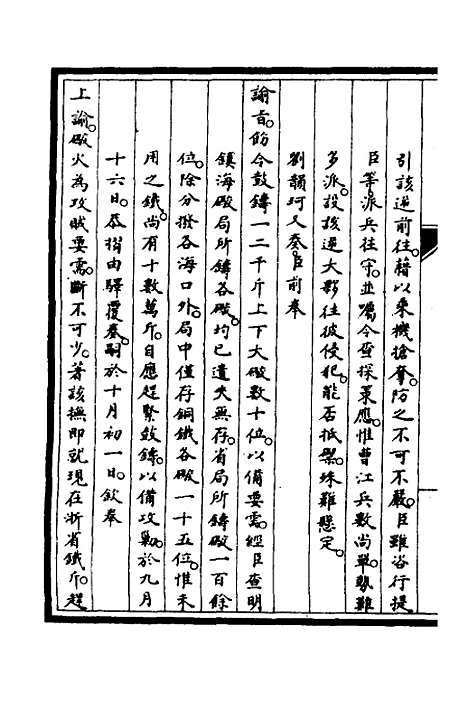 引該逆前往。藉以乘機搶奪。防之不可不嚴。臣雖咨行提
臣等。派兵往守。並囑令查探策應。惟曹江兵數尚單。勢難
多派。設該逆大夥往彼侵犯。能否抵禦。殊難懸定。
劉韻珂又奏。臣前奉
諭旨。飭令鼓鑄一二千斤上下大礮數十位。以備要需。經臣查明
鎮海礮局所鑄各礮。均已遺失無存。省局所鑄礮一百餘
位。除分撥各海口外。局中僅存銅鐵各礮一十五位。惟未
用之鐵。尚有十數萬斤。自應趕緊效鑄。以備攻剿。於九月
十六日。恭摺由驛覆奏。嗣於十月初一日。欽奉
上諭。礮火為攻賊要需。斷不可少。著該撫即就現在浙省鐵斤。趕